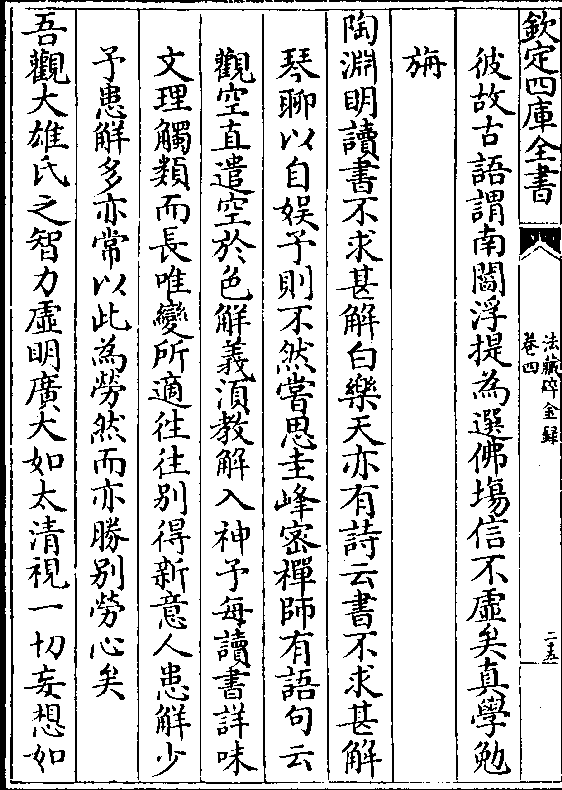 欽定四庫全書
法藏碎金録
卷四
二五
彼故古語謂南閻浮提為選佛塲信不虛矣真學勉
旃
陶淵明讀書不求甚解白樂天亦有詩云書不求甚解
琴聊以自娱予則不然嘗思圭峰密禪師有語句云
觀空直遣空於色解義湏教解入神予每讀書詳味
文理觸類而長唯變所適徃徃别得新意人患解少
予患解多亦常以此為勞然而亦勝别勞心矣
吾觀大雄氏之智力虛明廣大如太清視一切妄想如